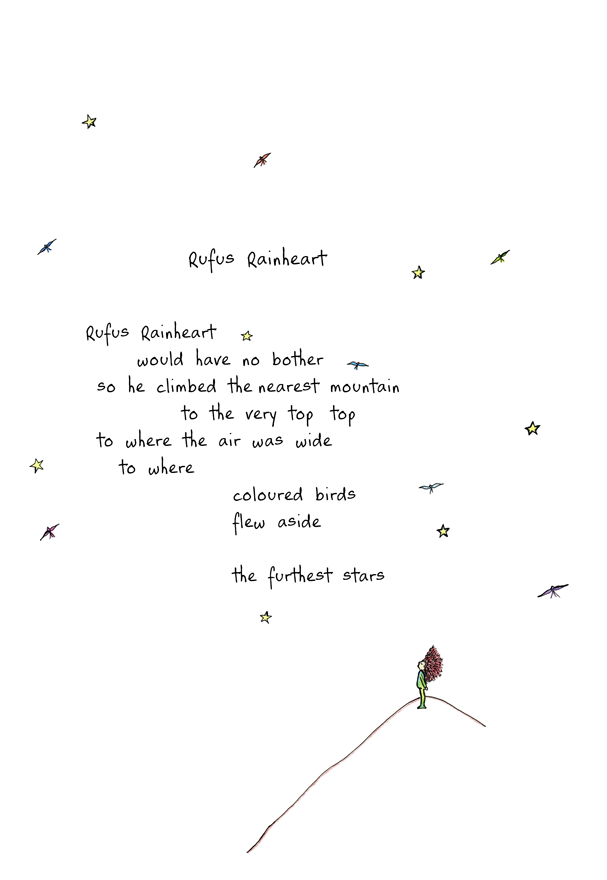 Rufus Rainheart
Rufus Rainheart
would have no bother
so he climbed the nearest mountain
to the very top top
to where the air was wide
to where
coloured birds
flew aside
the furthest stars